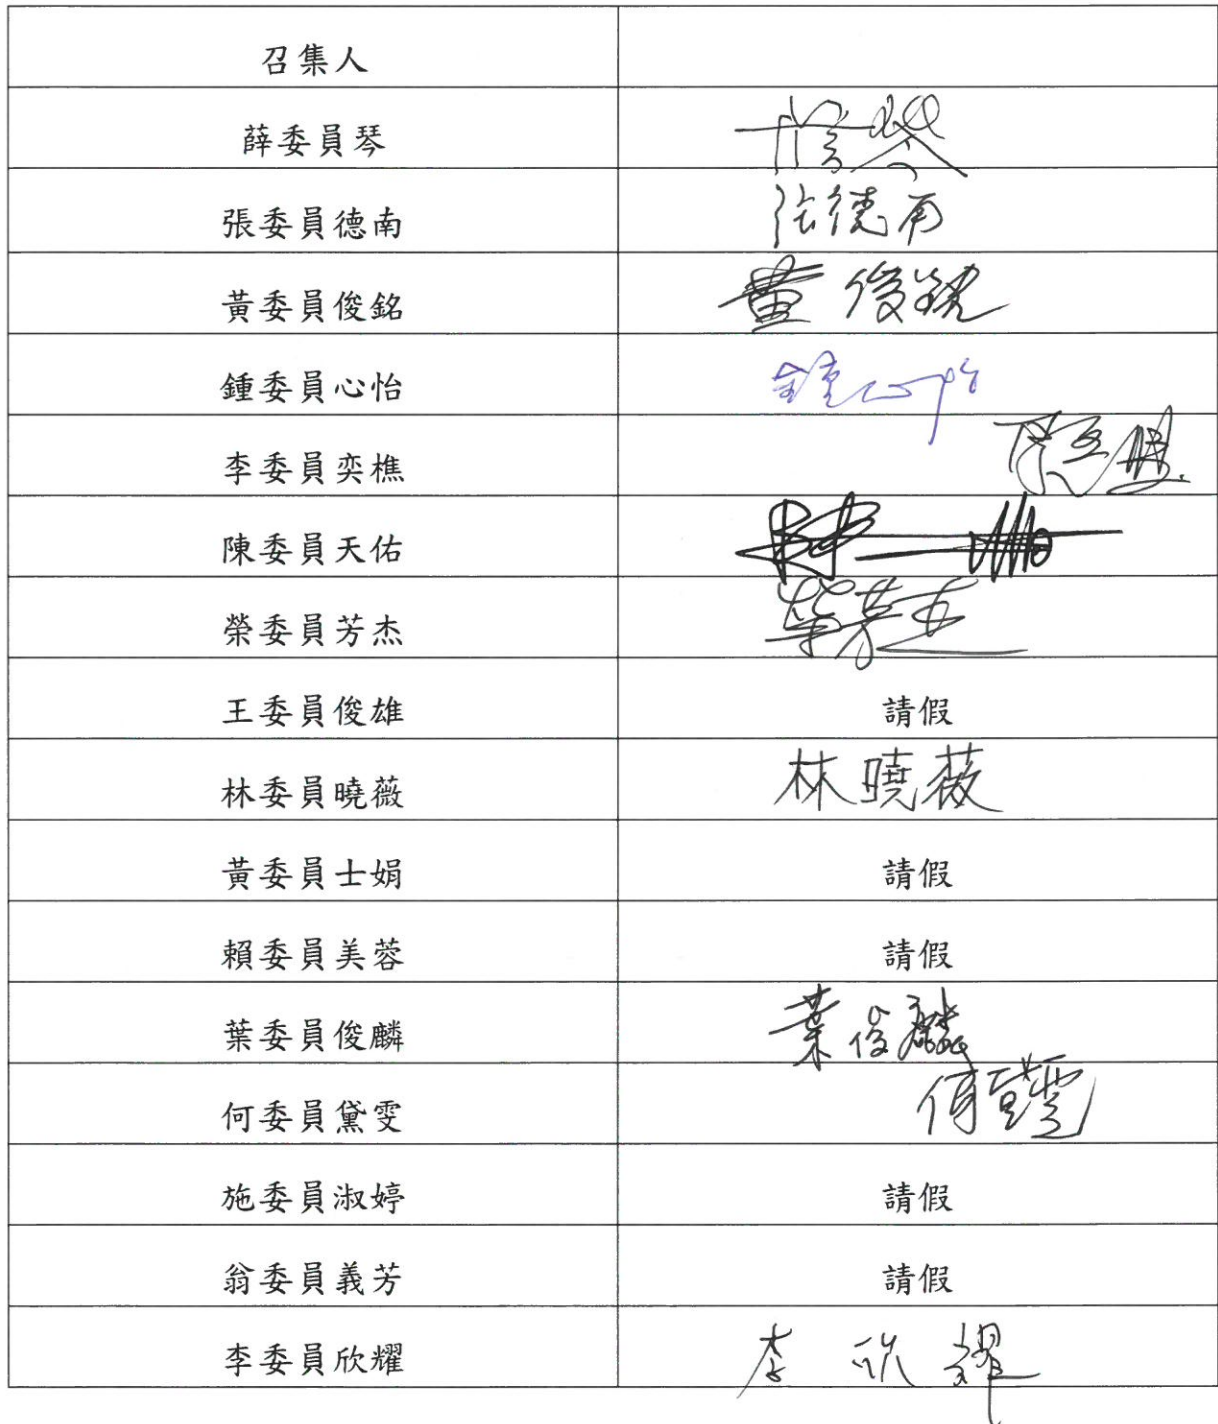 召集人
薛委員琴 薛琴
張委員德南 張德南
黃委員俊銘 黃俊銘
鍾委員心怡 鍾心怡
李委員奕樵
陳委員天佑
榮委員芳杰 榮芳杰
王委員俊雄 請假
林委員曉薇 林曉薇
黃委員士娟 請假
賴委員美蓉 請假
葉委員俊麟 葉俊麟
何委員黛雯 何黛雯
施委員淑婷 請假
翁委員義芳 請假
李委員欣耀 李欣耀